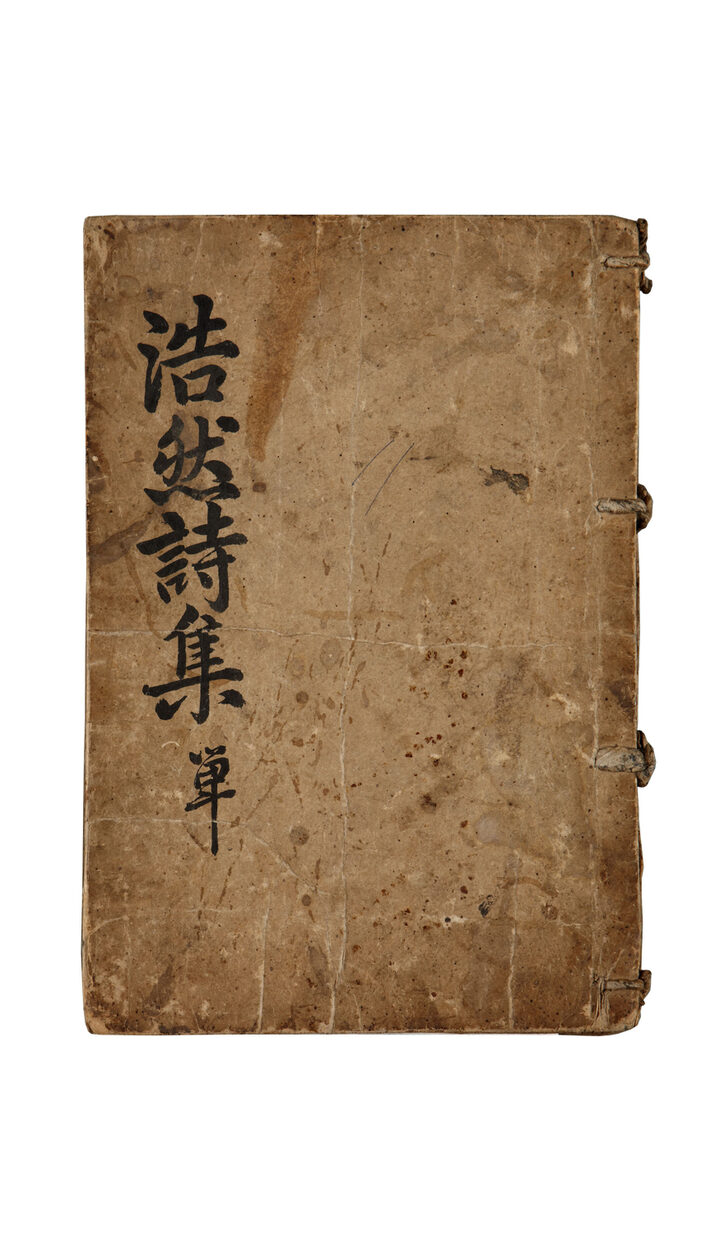 浩然詩集
単